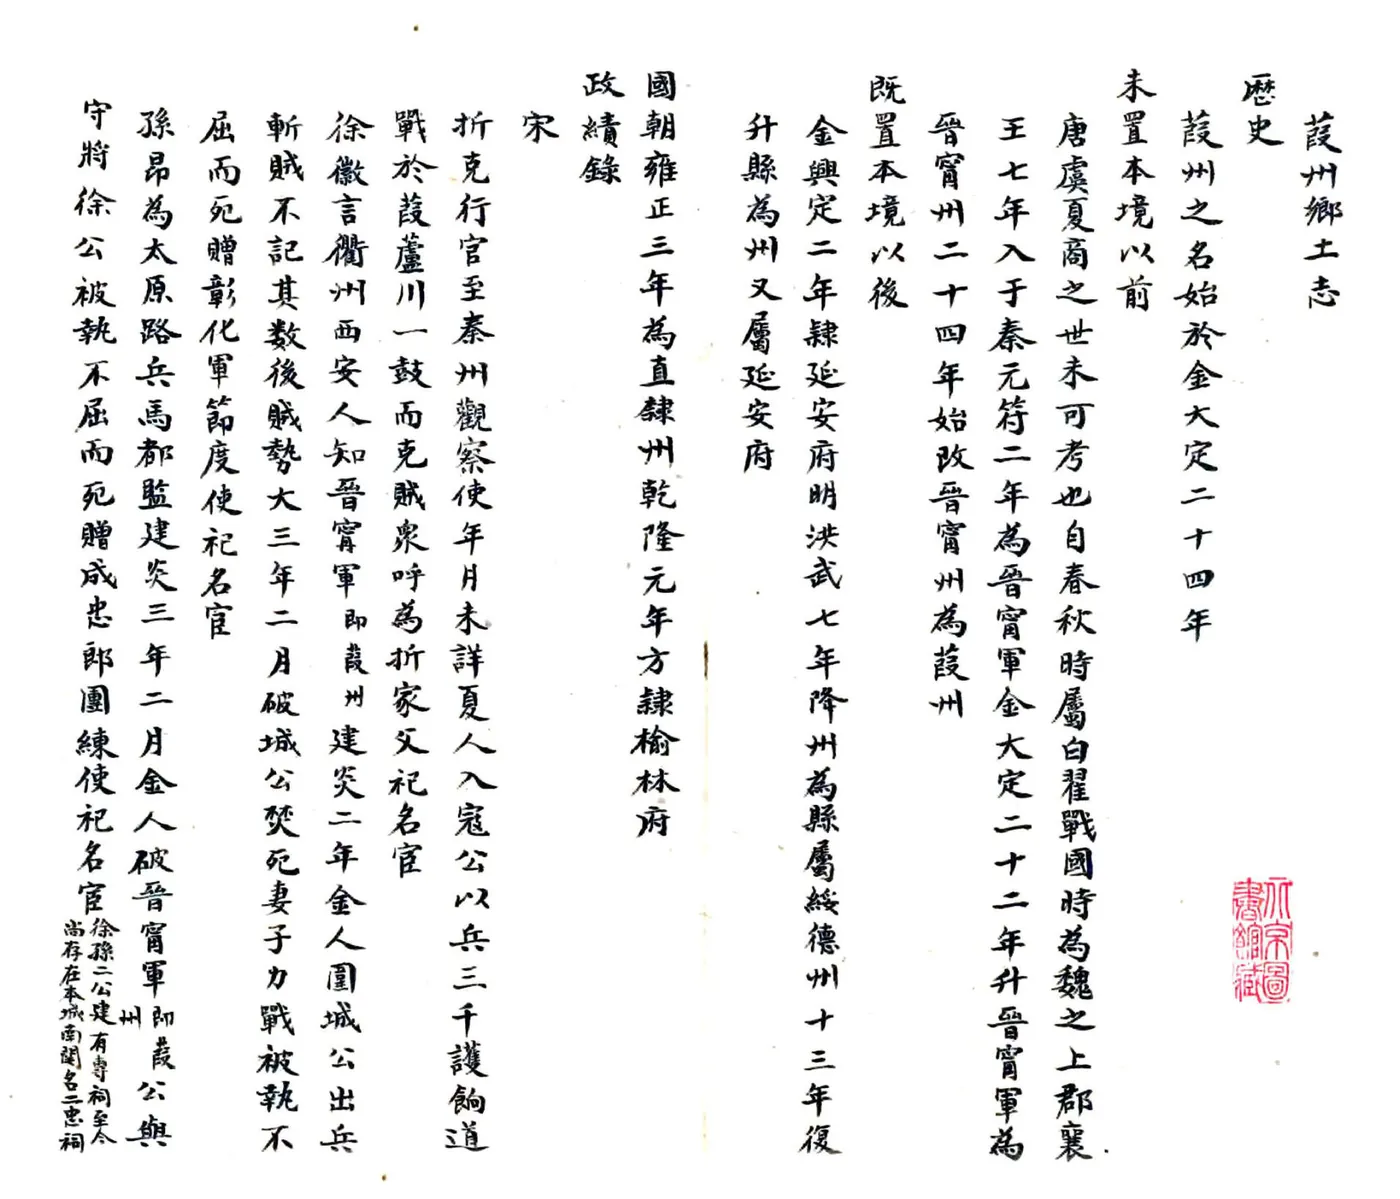 葭州鄉土志
歷史
葭州之名始於金大定二十四年
未置本境以前
唐虞夏商之世未可考也自春秋時屬白翟戰國時為魏之上郡襄
王七年入于秦元符二年為晉甯軍金大定二十二年升晉甯軍為
晉甯州二十四年始改晉甯州為葭州
既置本境以後
金興定二年隸延安府明洪武七年降州為縣屬綏德州十三年復
升縣為州又屬延安府
國朝雍正三年為直隸州乾隆元年方隸榆林府
政績錄
宋
折克行官至秦州觀察使年月未詳夏人入寇公以兵三千護餉道
戰於葭蘆川一鼓而克賊衆呼為折家父祀名宦
徐徽言衢州西安人知晉甯軍即葭州建炎二年金人圍城公出兵
斬賊不記其数後賊勢大三年二月破城公焚死妻子力戰被執不
屈而死贈彰化軍節度使祀名宦
孫昂為太原路兵馬都監建炎三年二月金人破晉甯軍即葭州公與
守將徐公被執不屈而死贈成忠郎團練使祀名宦徐孫二公建有專祠至今
尚存在本城南関名二忠祠
北京圖書館藏